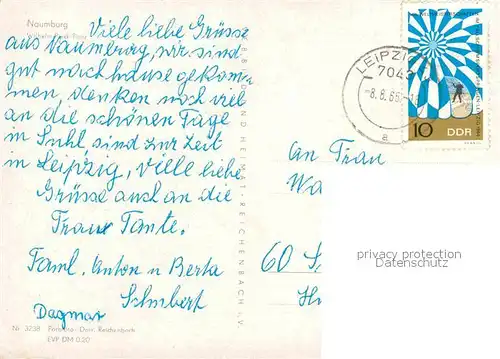 Naumburg
Viele liebe Grüsse
aus Naumburg, wir sind
gut nach hause gekom-
men, denken noch viel
an die schönen Tage
in Suhl, sind zur Zeit
in Leipzig, Viele liebe
Grüsse auch an die
Frau Tante.
Faml. Anton u Berta
Schubert
Dagmar
Nr. 3238
Reichenbach
EVP DM 0.20
BILD UND HEIMAT REICHENBACH i. V.
LEIPZIG
7043
-8.8.66
a
10 DDR
An Frau
Wa
60 S
privacy protection
Datenschutz